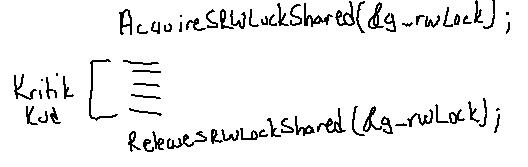 AcquireSRWLockShared(&g_rwLock);
Kritik
Kod
ReleaseSRWLockShared(&g_rwLock);